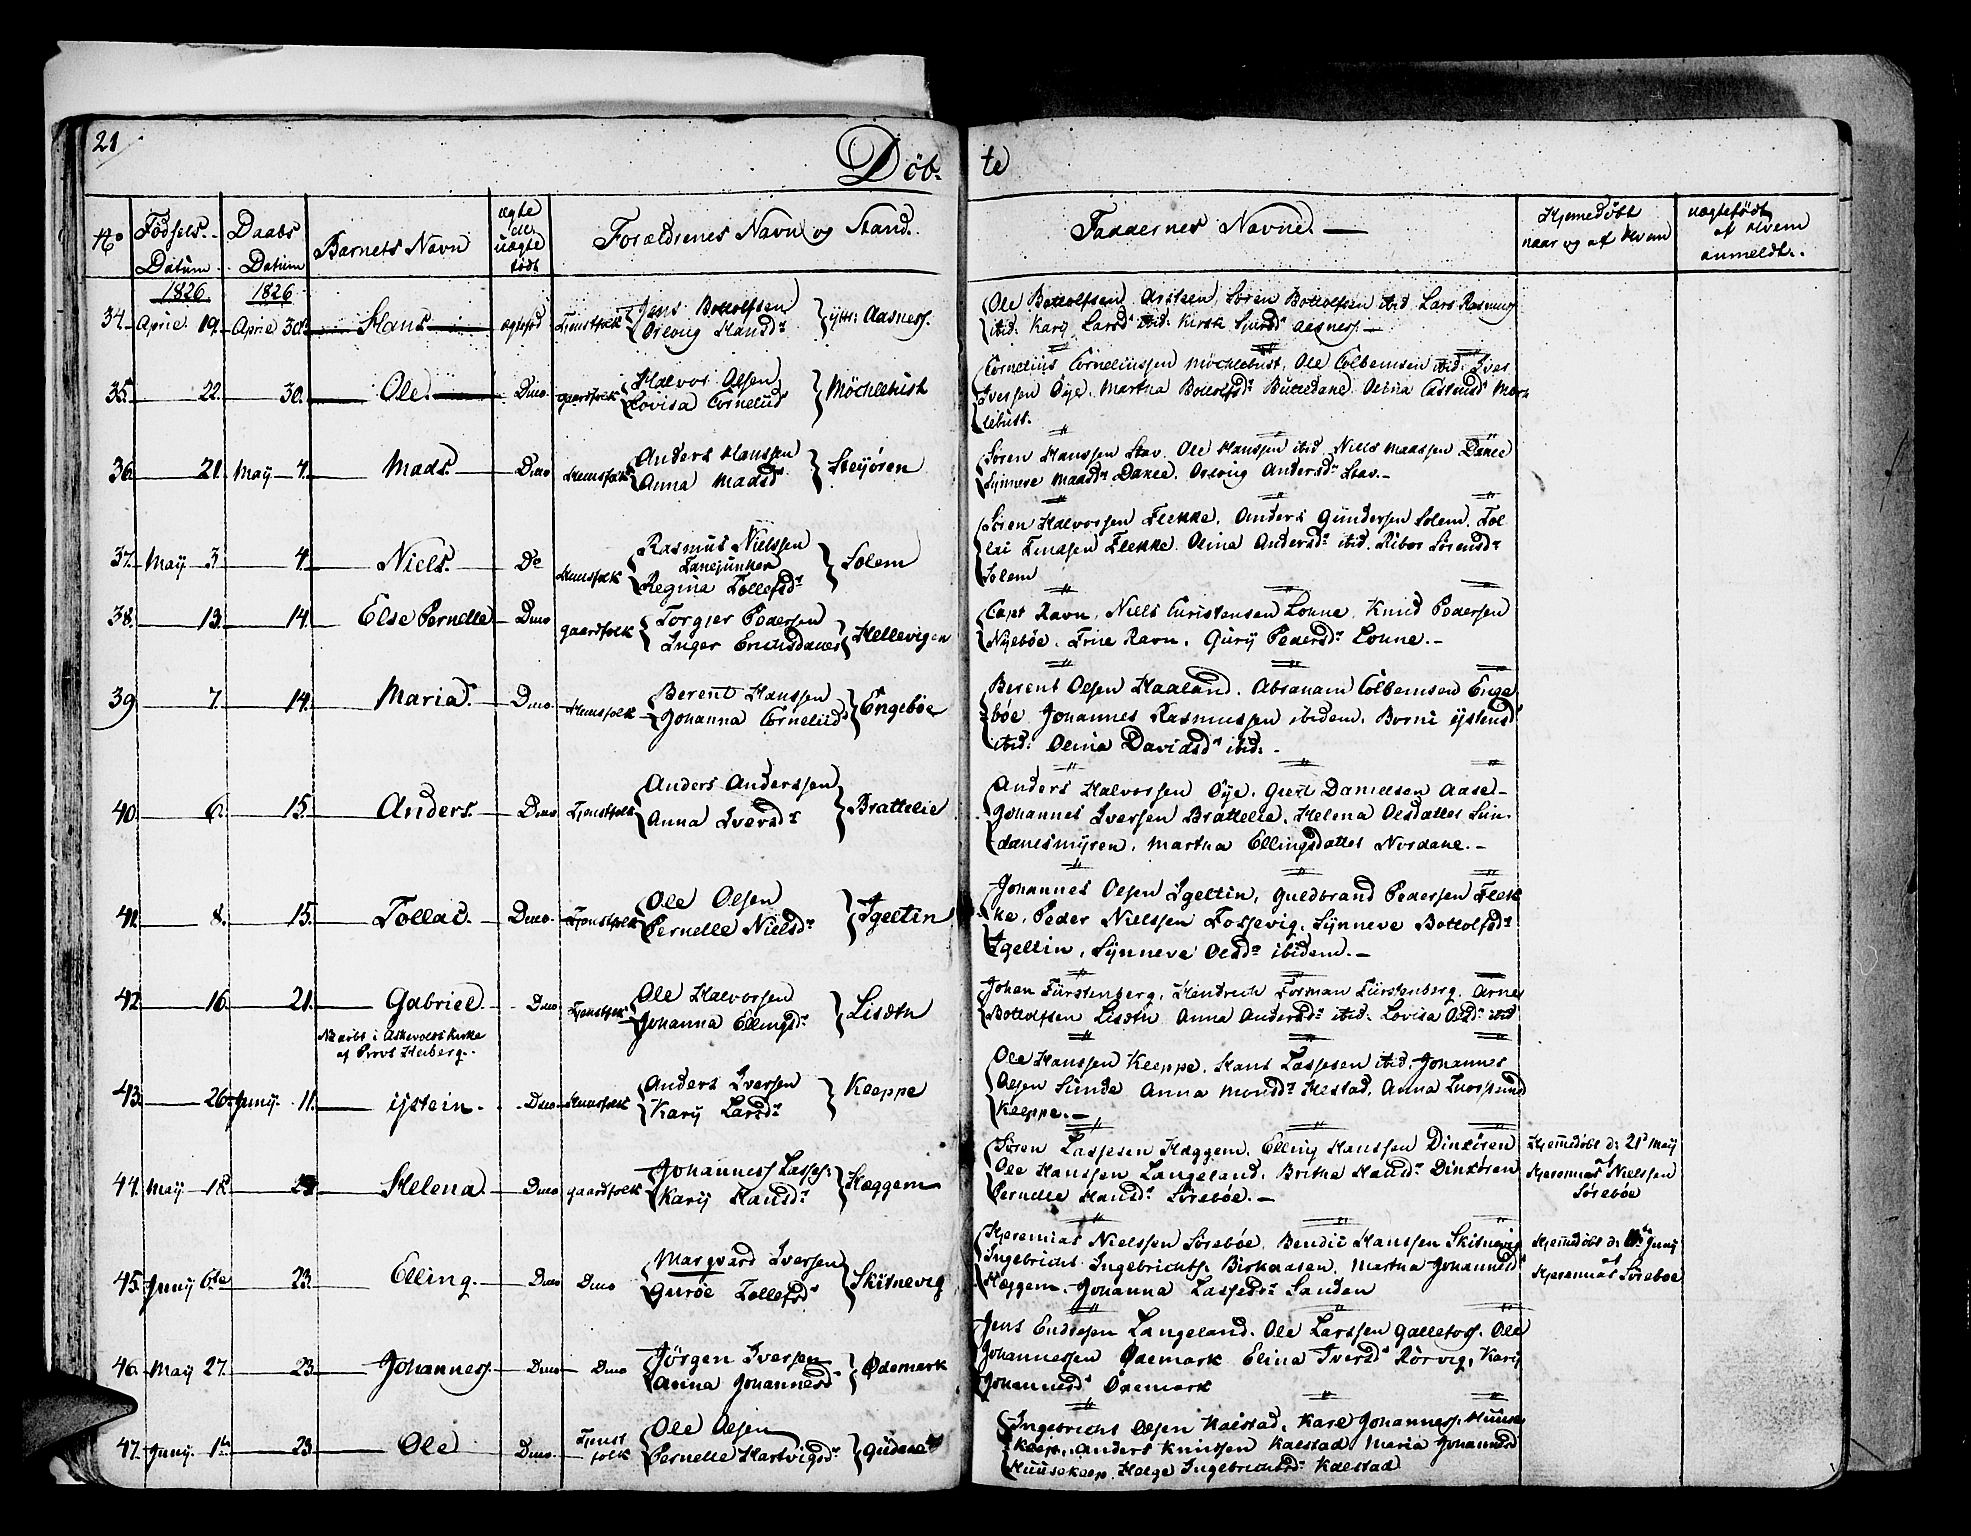 21
Döb- te
No Födsels Datum Daabs Datum Barnets Navn ægte ell. uægte födt Forældrenes Navn og Stand. Faddernes Navne. Hjemedöbt naar og af Hvem uægtefödt af Hvem anmeldt.
1826 1826
34. April 19. April 30. Hans ægtefød Tjenstfolk Jens Bottolfsen Oselvig Hansdr ytt: Aasness.
Ole Bottolfsen Sören Bottolfsen ibid. Lars Rasmuss
ibid: Kary Larsdr ibid: Sjursdr Aasness.
35. 22. 30. Ole. Duo gaardfolk Halvor Olsen Lovisa Cornelisd Möchlebust
Cornelius Corneliussen Möchlebust, Ole Colbemsen ibid. Iver
Iversen Öye. Martha Bottolfsdr Buttedane. Olina
lebust.
36. 21. May 4. Mads. Duo Huusfolk Anders Hanssen Anna Madsd Steyören
Sören Hanssen Stav. Ole Hanssen ibid. Niels Madssen
Synneve Madsdr Oselvig Andersdr Stav.
37. May 3. 4. Niels. Do Huusfolk Rasmus Nielssen Regina Tollefsdr Solem
Sören Halvorsen Flekke. Anders Gundersen Solem. Tol
lei Flekke. Olina Andersdr ibid. Sörensdr
Solem
38. 13. 14. Else Pernelle Duo gaardfolk Torgier Pedersen Inger Hellevigen
Capt Ravn, Niels Christensen Lonne. Knud Pedersen
Nyböe. Trine Ravn. Gury Pedersdr Lonne.
39. 7. 14. Maria. Duo Huusfolk Berent Hanssen Johanna Cornelisd Engeböe
Berent Olsen Haaland. Abraham Colbemsen Enge
böe Johannes Rasmussen ibidem.
ibid: Olina Davidsdr ibid.
40. 6. 15. Anders. Duo Tjenstfolk Anders Anderssen Anna Iversdr Brattelie
Anders Halvorsen Öye. Danielsen Aasel
Johannes Iversen Brattelie. Helena Olsdatter Sun-
danesmyren. Martha Ellingsdatter Nordane.
41. 8. 15. Tollai. Duo Tjenstfolk Ole Olsen Pernelle Nielsdr Igeltin
Johannes Olsen Igeltin, Guldbrand Pedersen Flek
ke, Peder Nielssen Fossevig. Synneve Bottolfsdr
Igeltin, Synneve Olsdr ibidem.
42. 16. 21. Gabriel Duo Tjenstfolk Ole Halvorsen Johanna Ellingsdr Lisötn
Johan Fürstenberg, Hindrich Forman Fürstenberg. Arne
Bottolfsen Lisötn Anna Andersdr ibid: Lovisa Olsdr ibid
i Askevolds Kirke
af Provst Heiberg.
43. 26. Juny 11. Ystein. Duo Huusfolk Anders Iversen Kary Larsdr Kleppe
Ole Hanssen Kleppe. Hans Lassesen ibid. Johannes
Olsen Sunde Anna Monsdr Hestad. Anna
Kleppe.
44. May 18. 23. Helena. Duo gaardfolk Johannes Lasses: Kary Hansdr Hæggem
Sören Lassesen Hæggem. Elling Hanssen Dinkören
Ole Hanssen Langeland. Brithe Hansdr Dinkören
Pernelle Hansdr Söreböe.
Hjemedöbt d: 21 May
af Nielssen
Söreböe
45. Juny 6te 23. Elling. Duo Duo Marqvard Iversen Guröe Tollefsdr Skitnevig
Hjeremias Nielssen Söreböe. Bendic Hanssen Skitnevig
Ingebricht Ingebrichts. Martha Johannesdr
Hæggem. Johanna Lassesdr Sanden
Hjemedöbt d: Juny
af
Hjeremias Söreböe
46. May 27. 23. Johannes. Duo Duo Jörgen Iversen Anna Johannesdr Ødemark
Jens Endresen Langeland. Ole Larssen Galletvss. Ole
Johannessen Ødemark Elina Iversdr Rörvig. Kary
Johannesdr Ødemark
47. Juny. 1te 23. Ole Duo. Tjenst folk Ole Olsen Pernelle Hartvigsdr
Ingebricht Olsen Kalstad. Karl Johanness. Huuse
Keep. Anders Knutsen Kalstad. Maria Johannesd
Huusekeep. Helge Ingebrichtsdr Kalstad